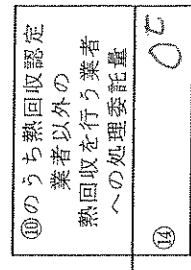 ⑩のうち熱回収認定
業者以外の
熱回収を行う業者
への処理委託量
⑭
0t